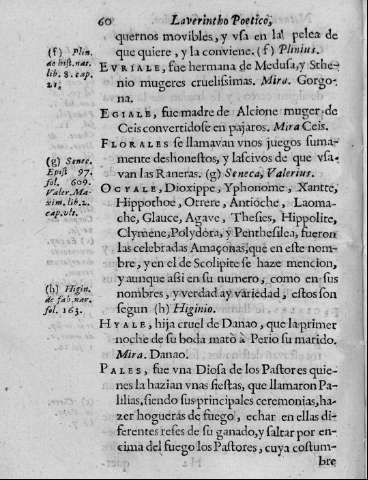 60 Laverintho Poetico,
quernos movibles, y vsa en la pelea de
que quiere, y la conviene. (f) Plinius.
(f) Plin.
de hist. nar.
lib. 8. cap.
21.
EVRIALE, fue hermana de Medusa, y Sthe-
nio mugeres cruelissimas. Mira. Gorgo-
na.
EGIALE, fue madre de Alcione muger de
Ceis convertidose en pajaros. Mira Ceis.
FLORALES se llamavan vnos juegos suma-
mente deshonestos, y lascivos de que vsa-
van las Raneras. (g) Seneca, Valerius.
(g) Senec.
Epist 97.
fol. 609.
Valer. Ma-
xim. lib. 2.
cap. vlt.
OCYALE, Dioxippe, Yphonome, Xantre,
Hippothoe, Otrere, Antioche, Laoma-
che, Glauce, Agave, Thesies, Hippolite,
Clymene, Polydora, y Penthesilea, fueron
las celebradas Amaçonas, que en este nom-
bre, y en el de Scolipite se haze mencion,
y aunque assi en su numero, como en sus
nombres, y verdad ay variedad, estos son
segun (h) Higinio.
(h) Higin.
de fab. nar.
fol. 163.
HYALE, hija cruel de Danao, que la primer
noche de su boda matò à Perio su marido.
Mira. Danao.
PALES, fue vna Diosa de los Pastores quie-
nes la hazian vnas fiestas, que llamaron Pa-
lilias, siendo sus principales ceremonias, ha-
zer hogueras de fuego, echar en ellas di-
ferentes reses de su ganado, y saltar por en-
cima del fuego los Pastores, cuya costum-
bre